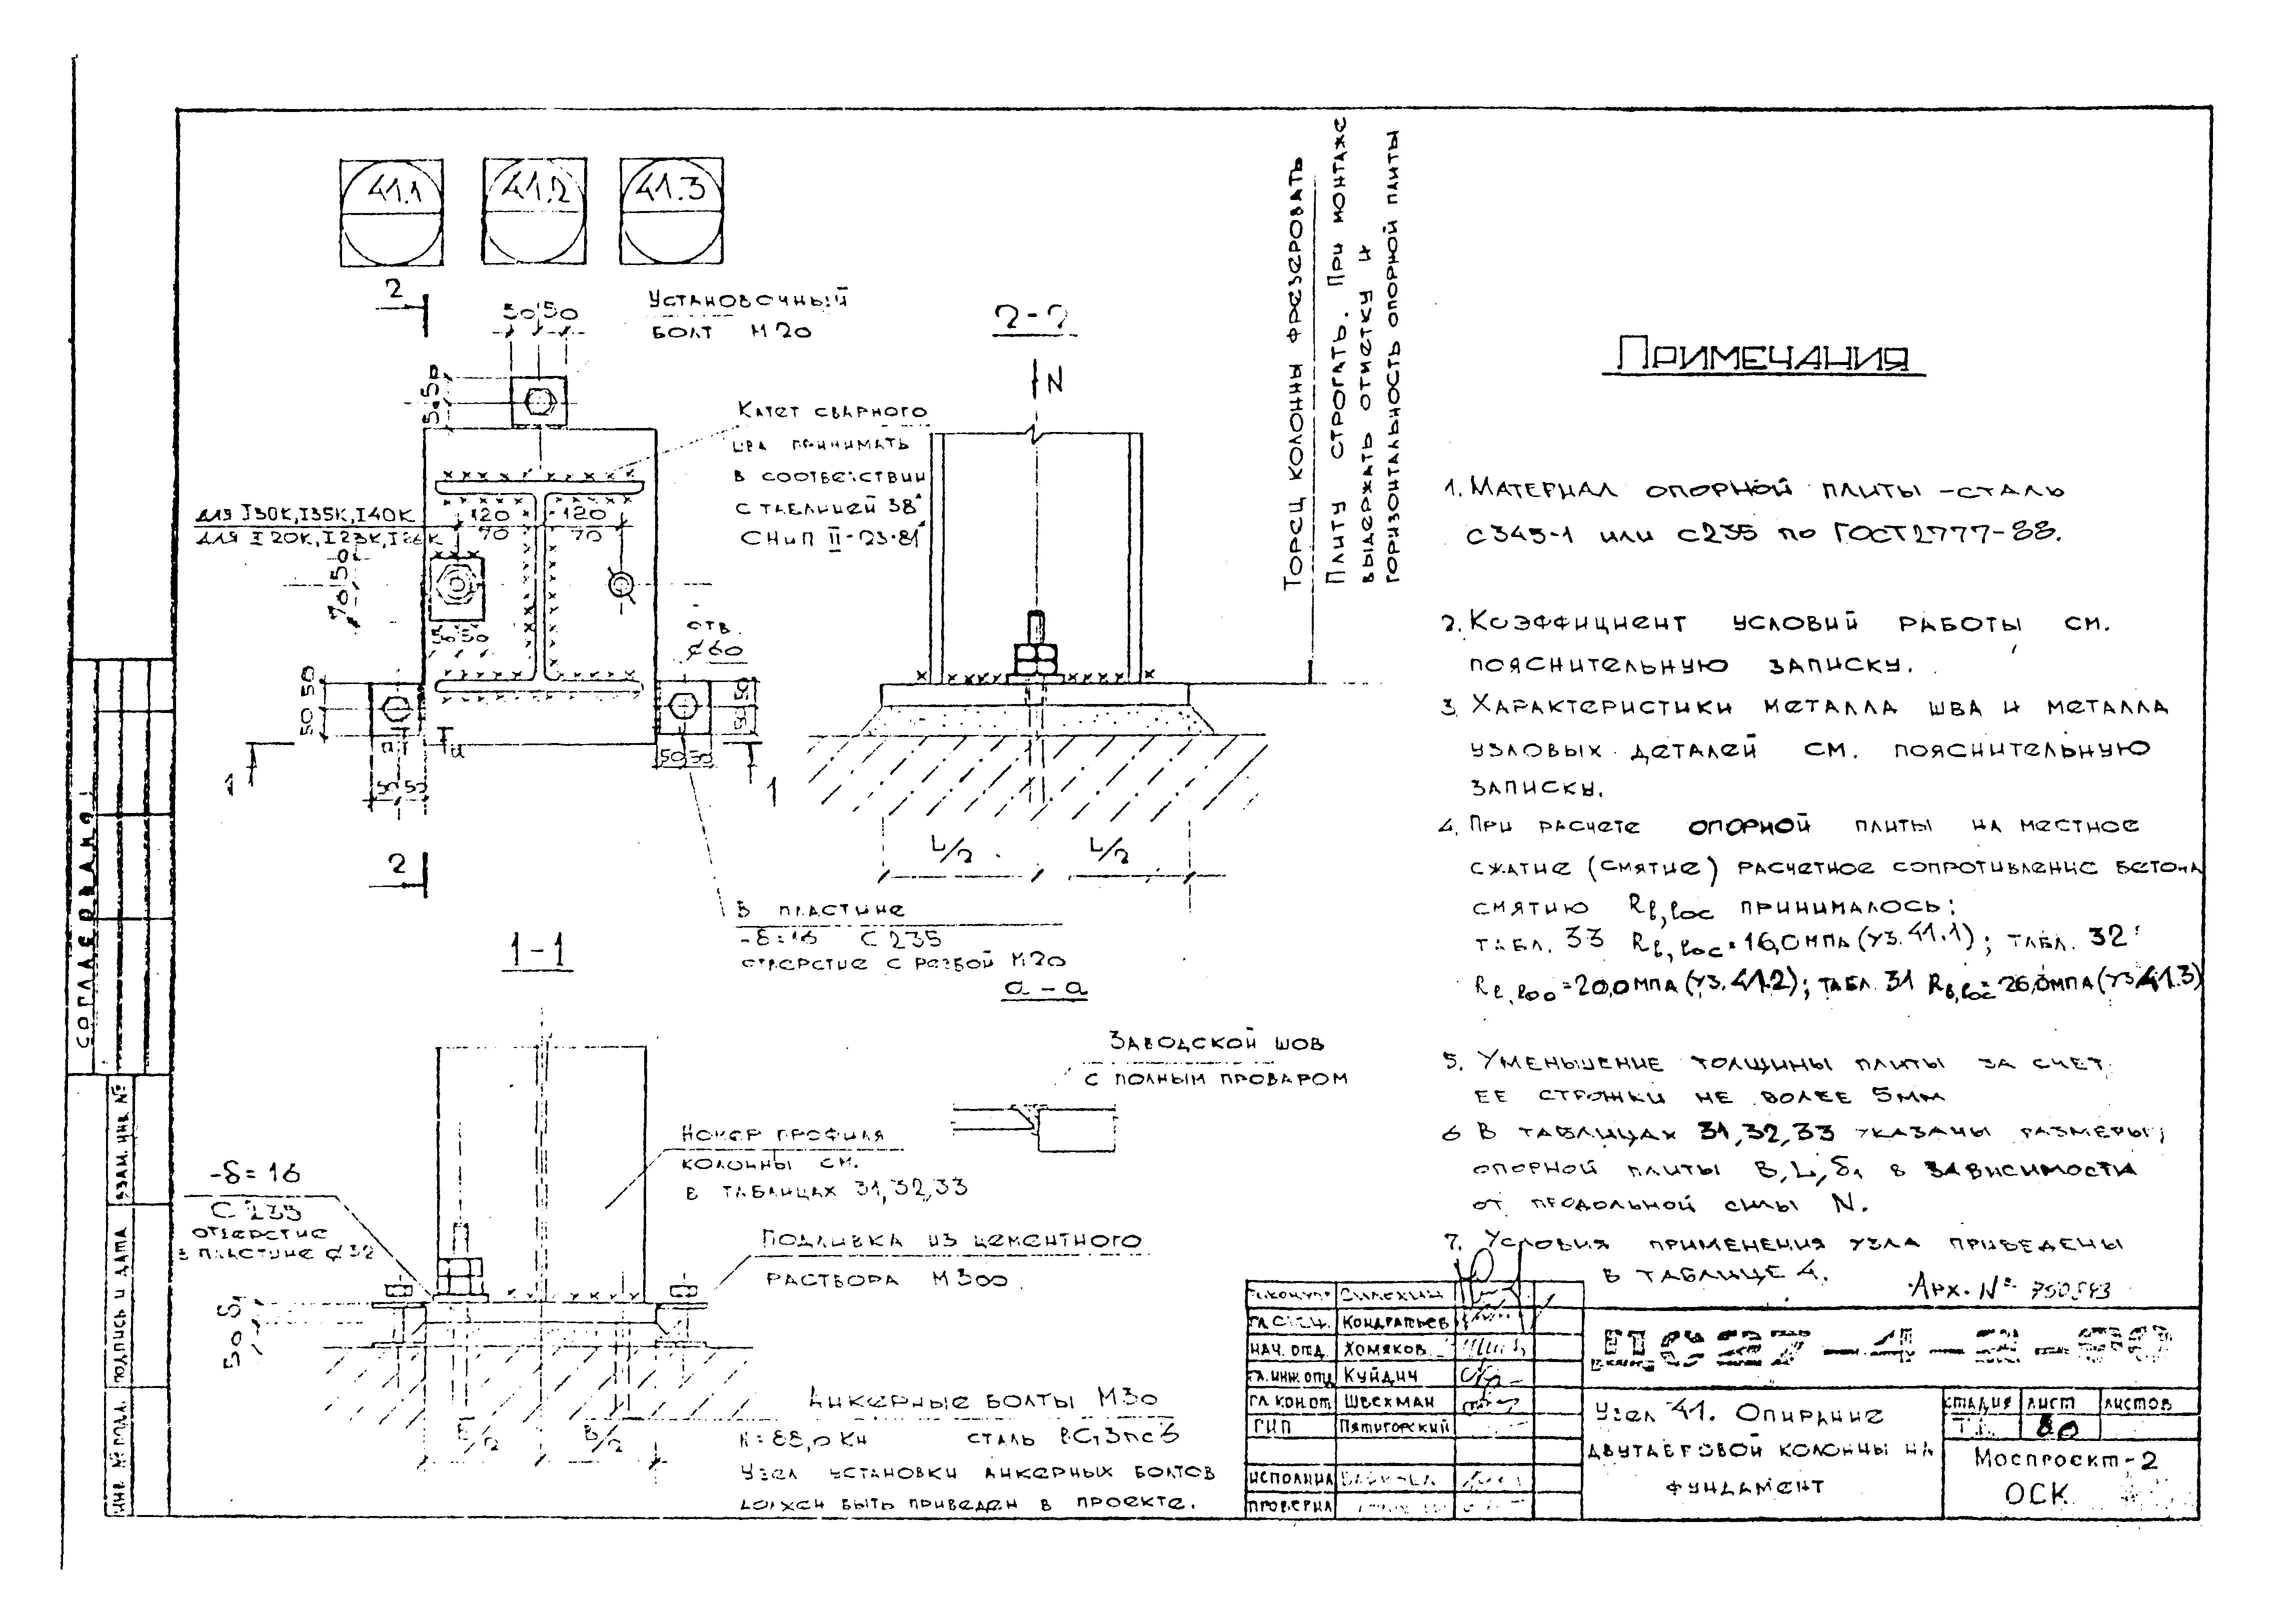 41.1
41.2
41.3
2
50 50
Установочный
болт М20
2-2
N
50 50
Катет сварного
шва принимать
в соответствии
с таблицей 38*
СНиП II-23-81*
для I30К, I35К, I40К
для I20К, I23К, I26К
120 120
70 70
70 50
50 50
отв.
⌀60
50 50
50 50
а
а
50 50
50 50
1
1
2
L/2 L/2
В пластине
-δ=16 С235
отверстие с резбой М20
Торец колонны фрезеровать
Плиту строгать. При монтаже
выдержать отметку и
горизонтальность опорной плиты
1-1
а-а
Заводской шов
с полным проваром
Номер профиля
колонны см.
в таблицах 31,32,33
-δ=16
С235
отверстие
в пластине ⌀32
Подливка из цементного
раствора М300
50 δ₁
В/2 В/2
Анкерные болты М30
N=88,0 кн сталь ВСт3пс6
Узел установки анкерных болтов
должен быть приведен в проекте.
Примечания
1. Материал опорной плиты - сталь
С345-1 или С235 по ГОСТ2777-88.
2. Коэффициент условий работы см.
пояснительную записку.
3. Характеристики металла шва и металла
узловых деталей см. пояснительную
записку.
4. При расчете опорной плиты на местное
сжатие (смятие) расчетное сопротивление бетона
смятию Rb,loc принималось:
табл. 33 Rb,loc=16,0мпа (уз. 41.1); табл. 32
Rb,loc=20,0мпа (уз. 41.2); табл. 31 Rb,loc=26,0мпа (уз. 41.3)
5. Уменьшение толщины плиты за счет
ее строжки не более 5мм
6 В таблицах 31,32,33 указаны размеры
опорной плиты B, L, δ₁ в зависимости
от продольной силы N.
7. Условия применения узла приведены
в таблице 4.
Арх. №
Гл. спец. Кондратьев
Нач. отд. Хомяков
Гл. инж. отд Куйдич
Гл. кон. от Швехман
ГИП Пятигорский
Исполнил
Проверил
Узел 41. Опирание
двутавровой колонны на
фундамент
стадия лист листов
80
Моспроект-2
ОСК
Согласовано
Взам. инв. №
Подпись и дата
Инв. № подл.